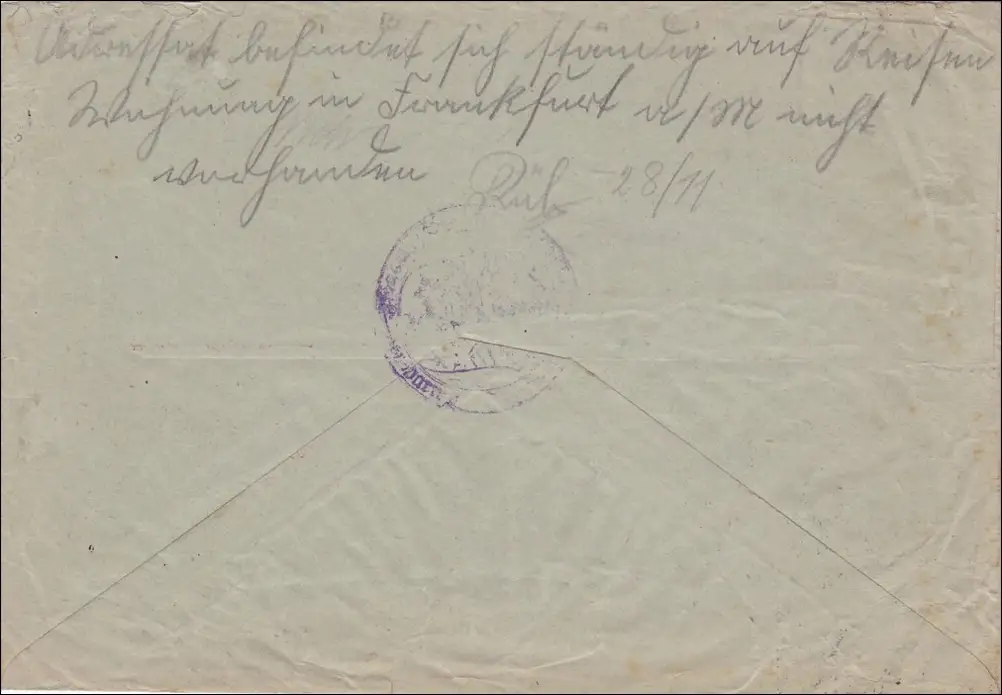 Adressat befindet sich ständig auf Reisen
Wohnung in Frankfurt a/M nicht
vorhanden Rühl 28/11